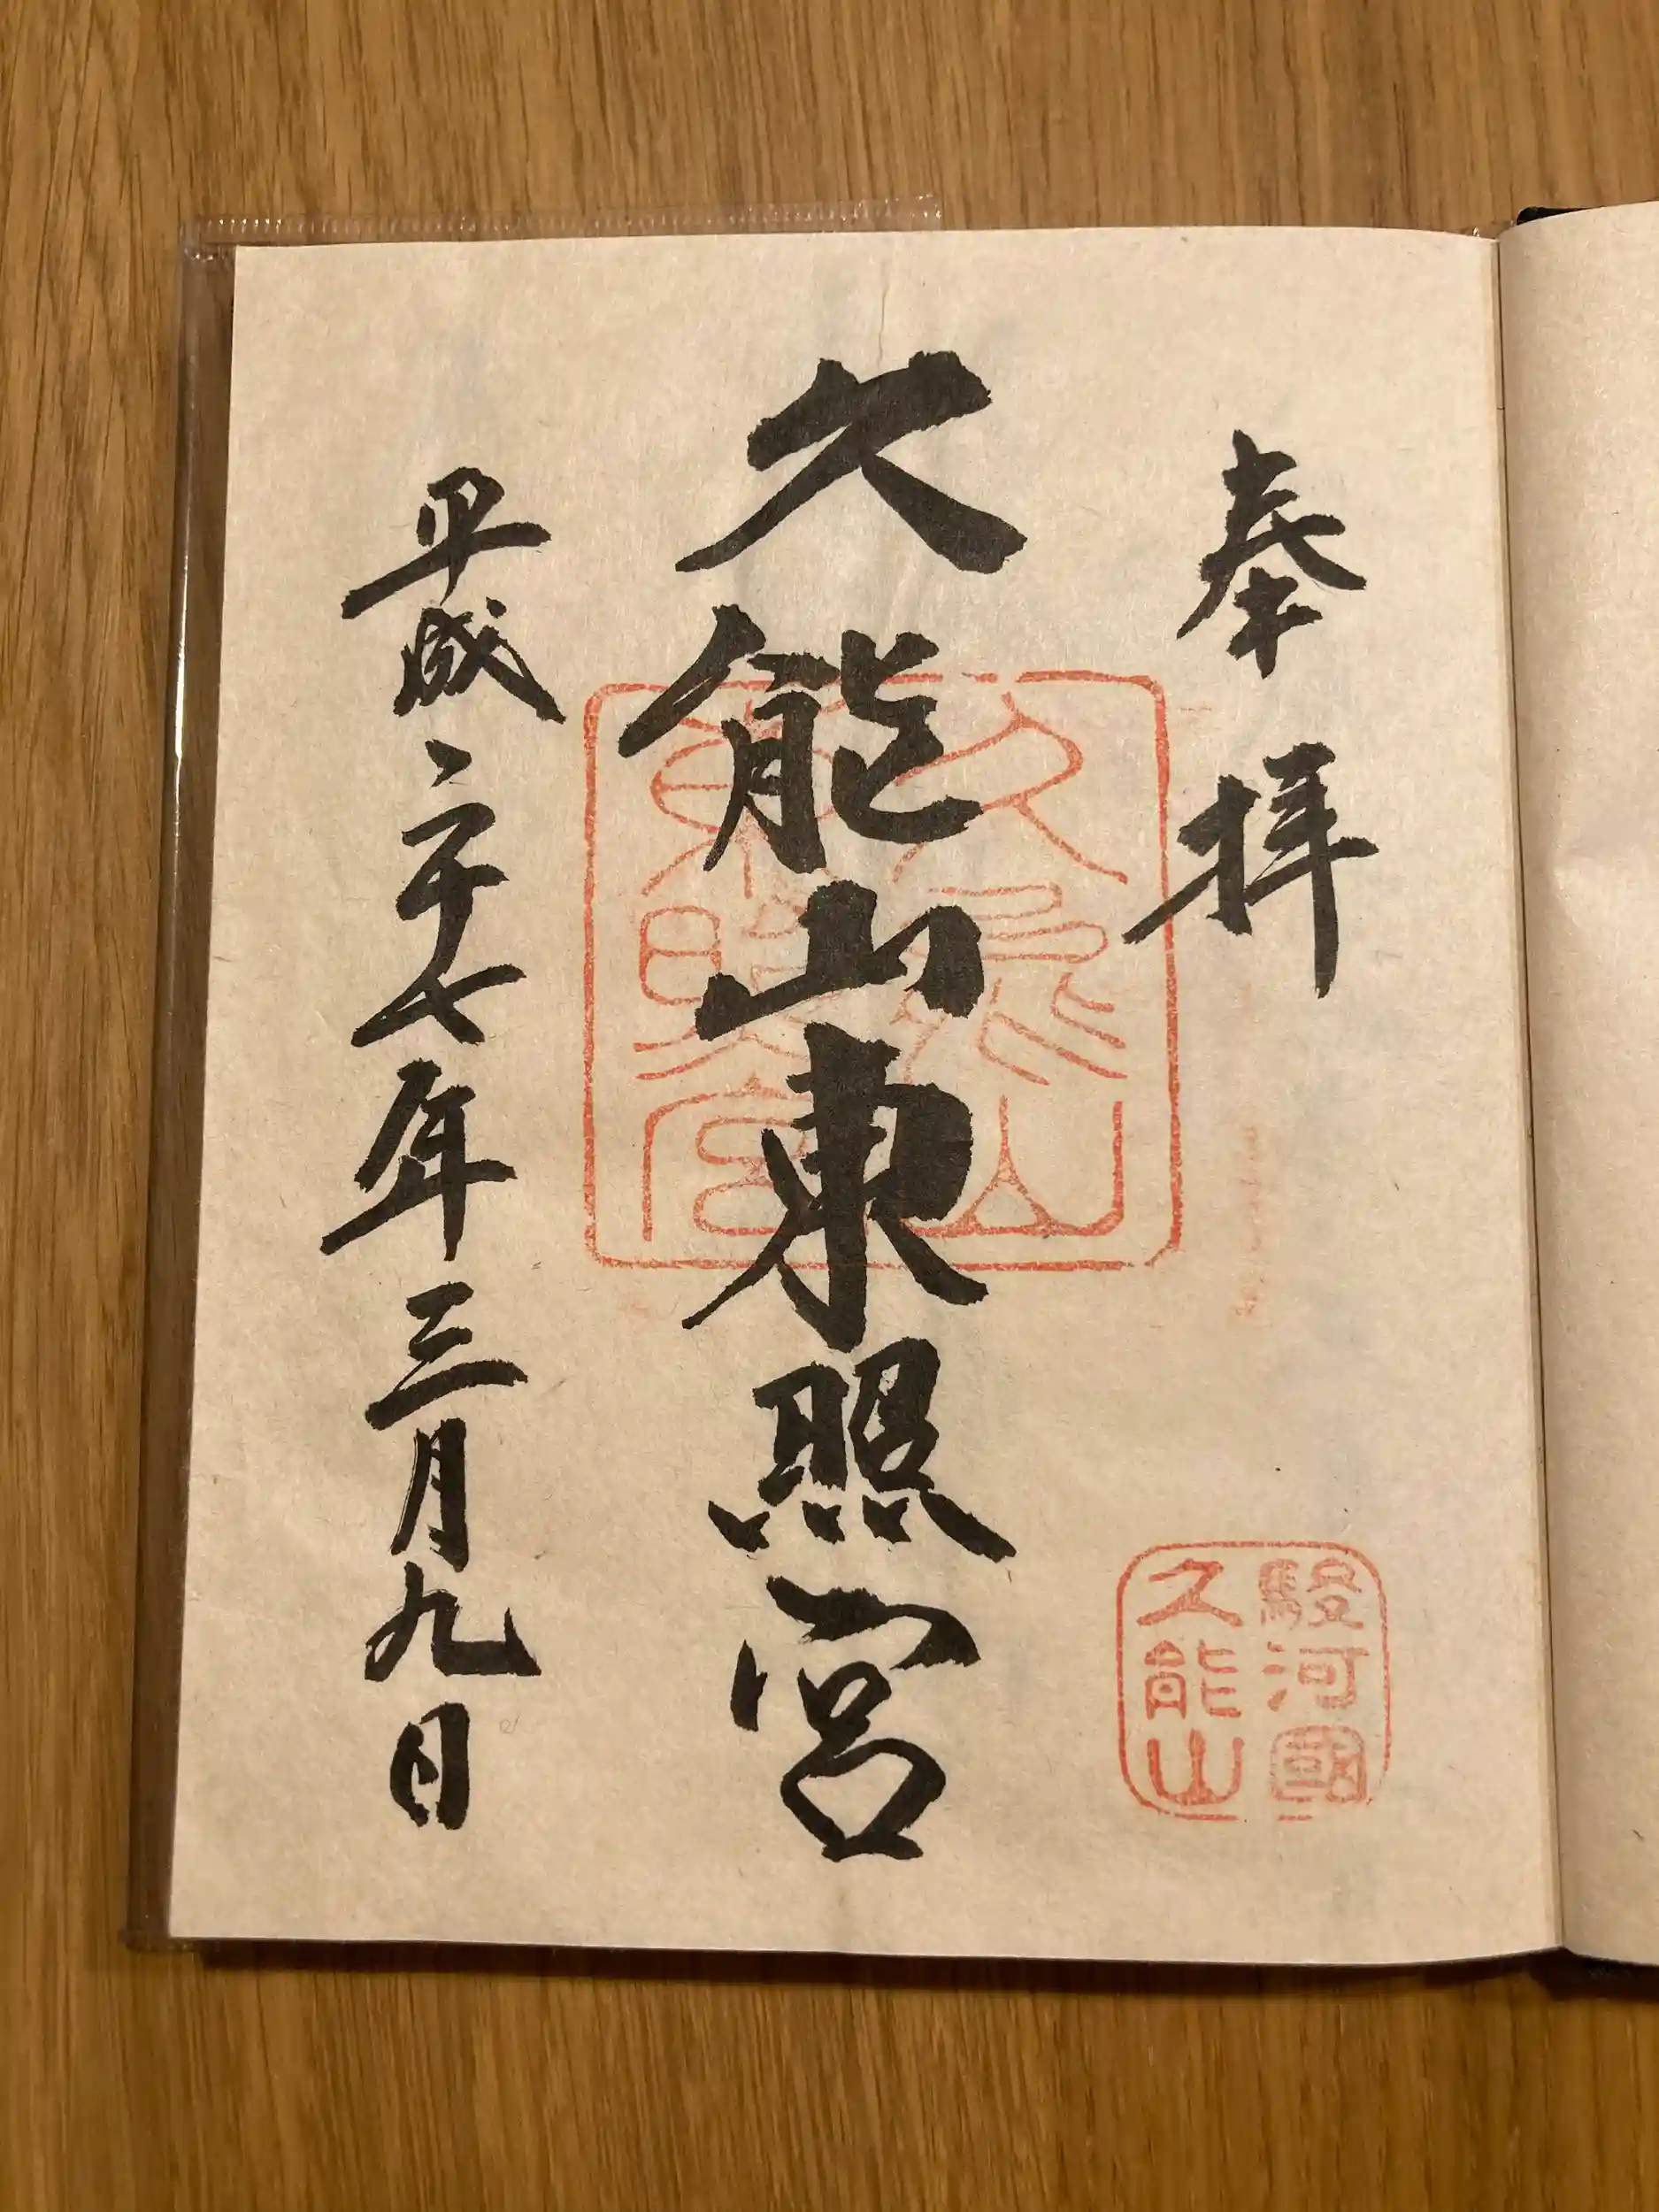 奉拝
駿河國
久能山
久能山東照宮
久能山
東照宮
平成二十七年三月九日